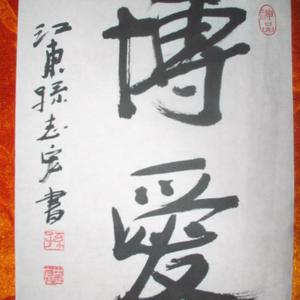 博愛
江東孫志宏書